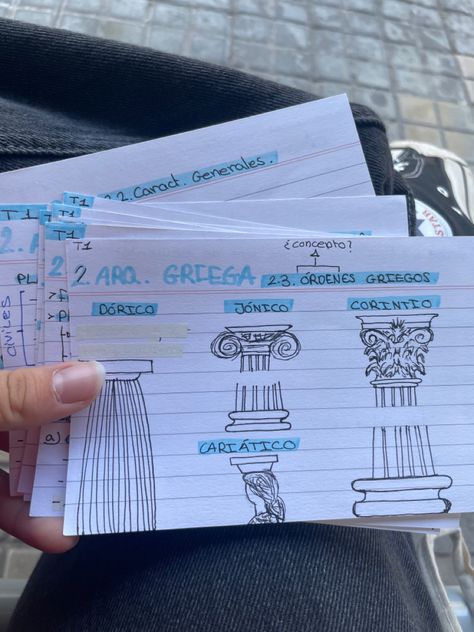 2.2. Caract. Generales.
T1
T1
T1
2. A
PL
civiles
a)
T1
¿concepto?
2. ARQ. GRIEGA
2.3. ÓRDENES GRIEGOS
DÓRICO
JÓNICO
CORINTIO
CARIÁTICO
STAR